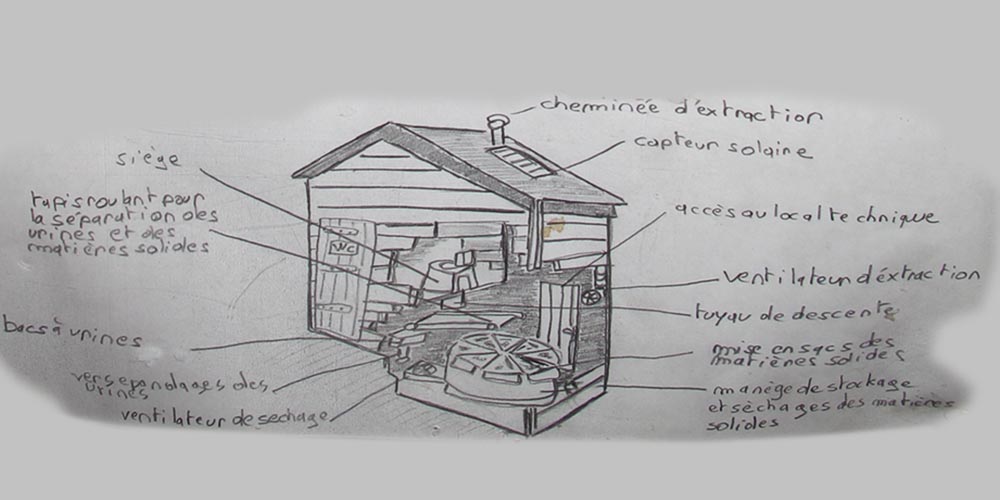 cheminée d'éxtraction
capteur solaire
siège
tapis roulant pour
la séparation des
urines et des
matières solides
accès au local technique
WC
ventilateur d'éxtraction
tuyau de descente
bacs à urines
mise en sacs des
matières solides
vers epandages des
urines
manège de stockage
et sèchages des matières
solides
ventilateur de sechage